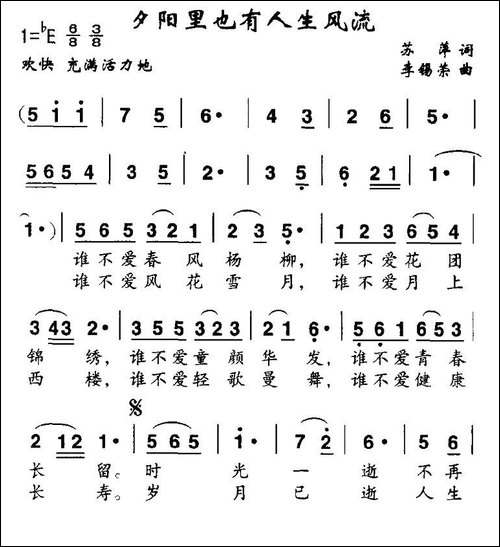 夕阳里也有人生风流
1=♭E 6/8 3/8
苏 萍 词
欢快 充满活力地
李锡荣 曲
(5 i i | 7 5 | 6· | 4 3 | 2 6 | 5· |
5654 | 3 5 | 2· | 3 5 | 6 21 | 1· |
1·) | 565 321 | 23 5· | 123 654 |
谁不爱春风杨柳，谁不爱花团
谁不爱风花雪月，谁不爱月上
3 43 2· | 355 535 | 21 6· | 561 653 |
锦绣，谁不爱童颜华发，谁不爱青春
西楼，谁不爱轻歌曼舞，谁不爱健康
2 12 1· | 565 | i· | 7 2 | 6· | 5 6 |
长留。时光一逝不再
长寿。岁月已逝人生